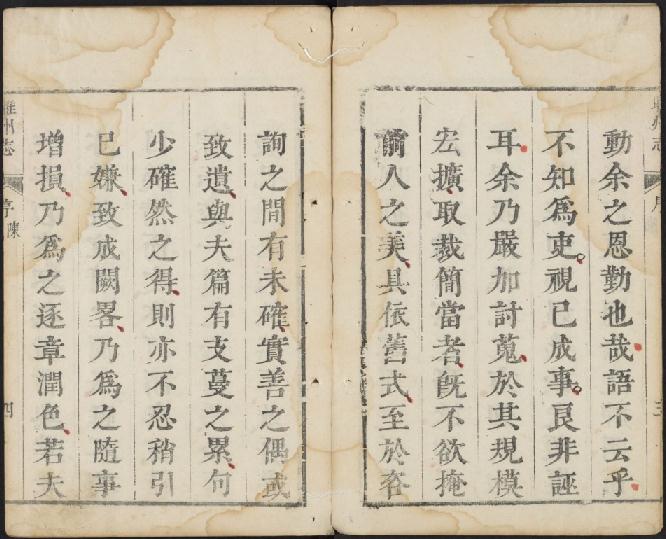 動余之恩勤也哉語不云乎
不知為吏視已成事良非誣
耳余乃嚴加討蒐於其規模
宏擴取裁簡當者旣不欲掩
前人之美具依舊式至於咨
詢之間有未確實善之偶或
致遺與夫篇有支蔓之累句
少確然之得則亦不忍稍引
已嫌致成闕畧乃為之隨事
增損乃為之逐章潤色若夫
雎州志
序
陳
四